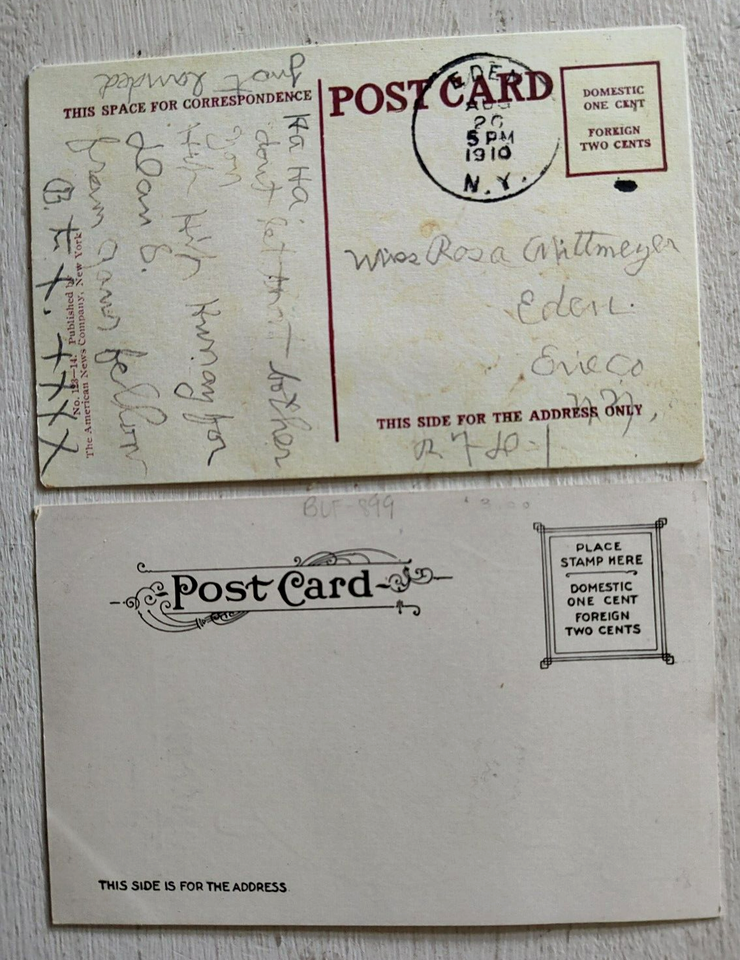 THIS SPACE FOR CORRESPONDENCE
POST CARD
EDEN
AUG
20
5 PM
1910
N.Y.
DOMESTIC
ONE CENT
FOREIGN
TWO CENTS
Just Landed
Ha Ha
dont let that bother
you
Hip Hip Hurray for
dear
from your fellow
B. F. X. XXXX
No. 123—14. Published by
The American News Company, New York
Miss Rosa Wittmeyer
Eden.
Erie Co
N.Y.
THIS SIDE FOR THE ADDRESS ONLY
R. F. D. 1
BLF-899
3.00
Post Card
PLACE
STAMP HERE
DOMESTIC
ONE CENT
FOREIGN
TWO CENTS
THIS SIDE IS FOR THE ADDRESS